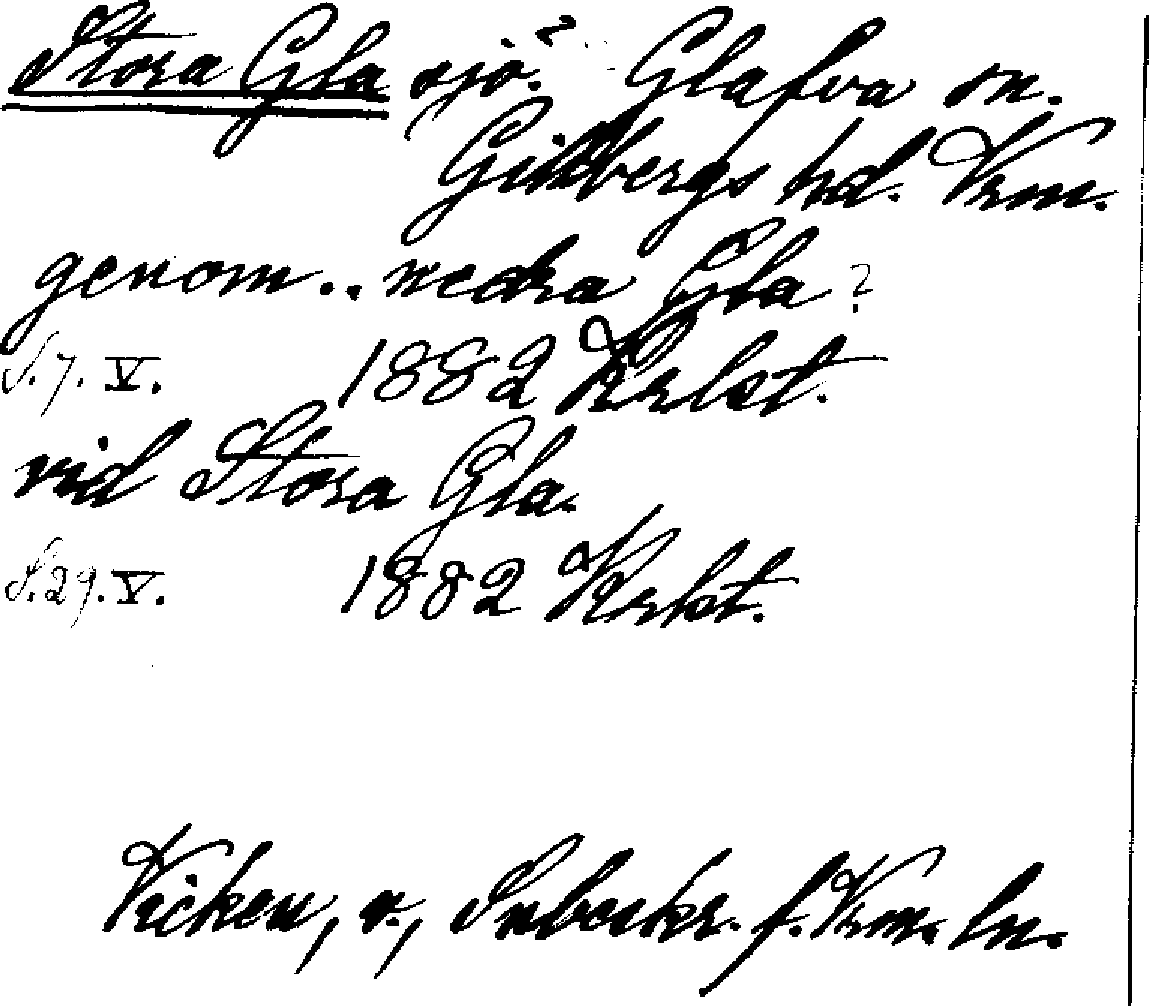 Stora Gla sjö? Glafva sn.
Gillbergs hd. Vrm.
genom .. nedra Gla?
S. 7. V. 1882 Krlst.
vid Stora Gla.
S. 29. V. 1882 Krlst.
Vicken, v., Snbeskr. f. Vrm. ln.